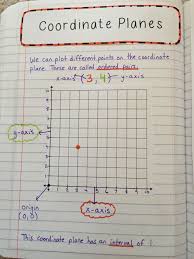 Coordinate Planes
We can plot different points on the coordinate
plane. These are called ordered pairs.
x-axis (3, 4) y-axis
y-axis
origin
(0,0)
x-axis
This coordinate plane has an interval of 1.